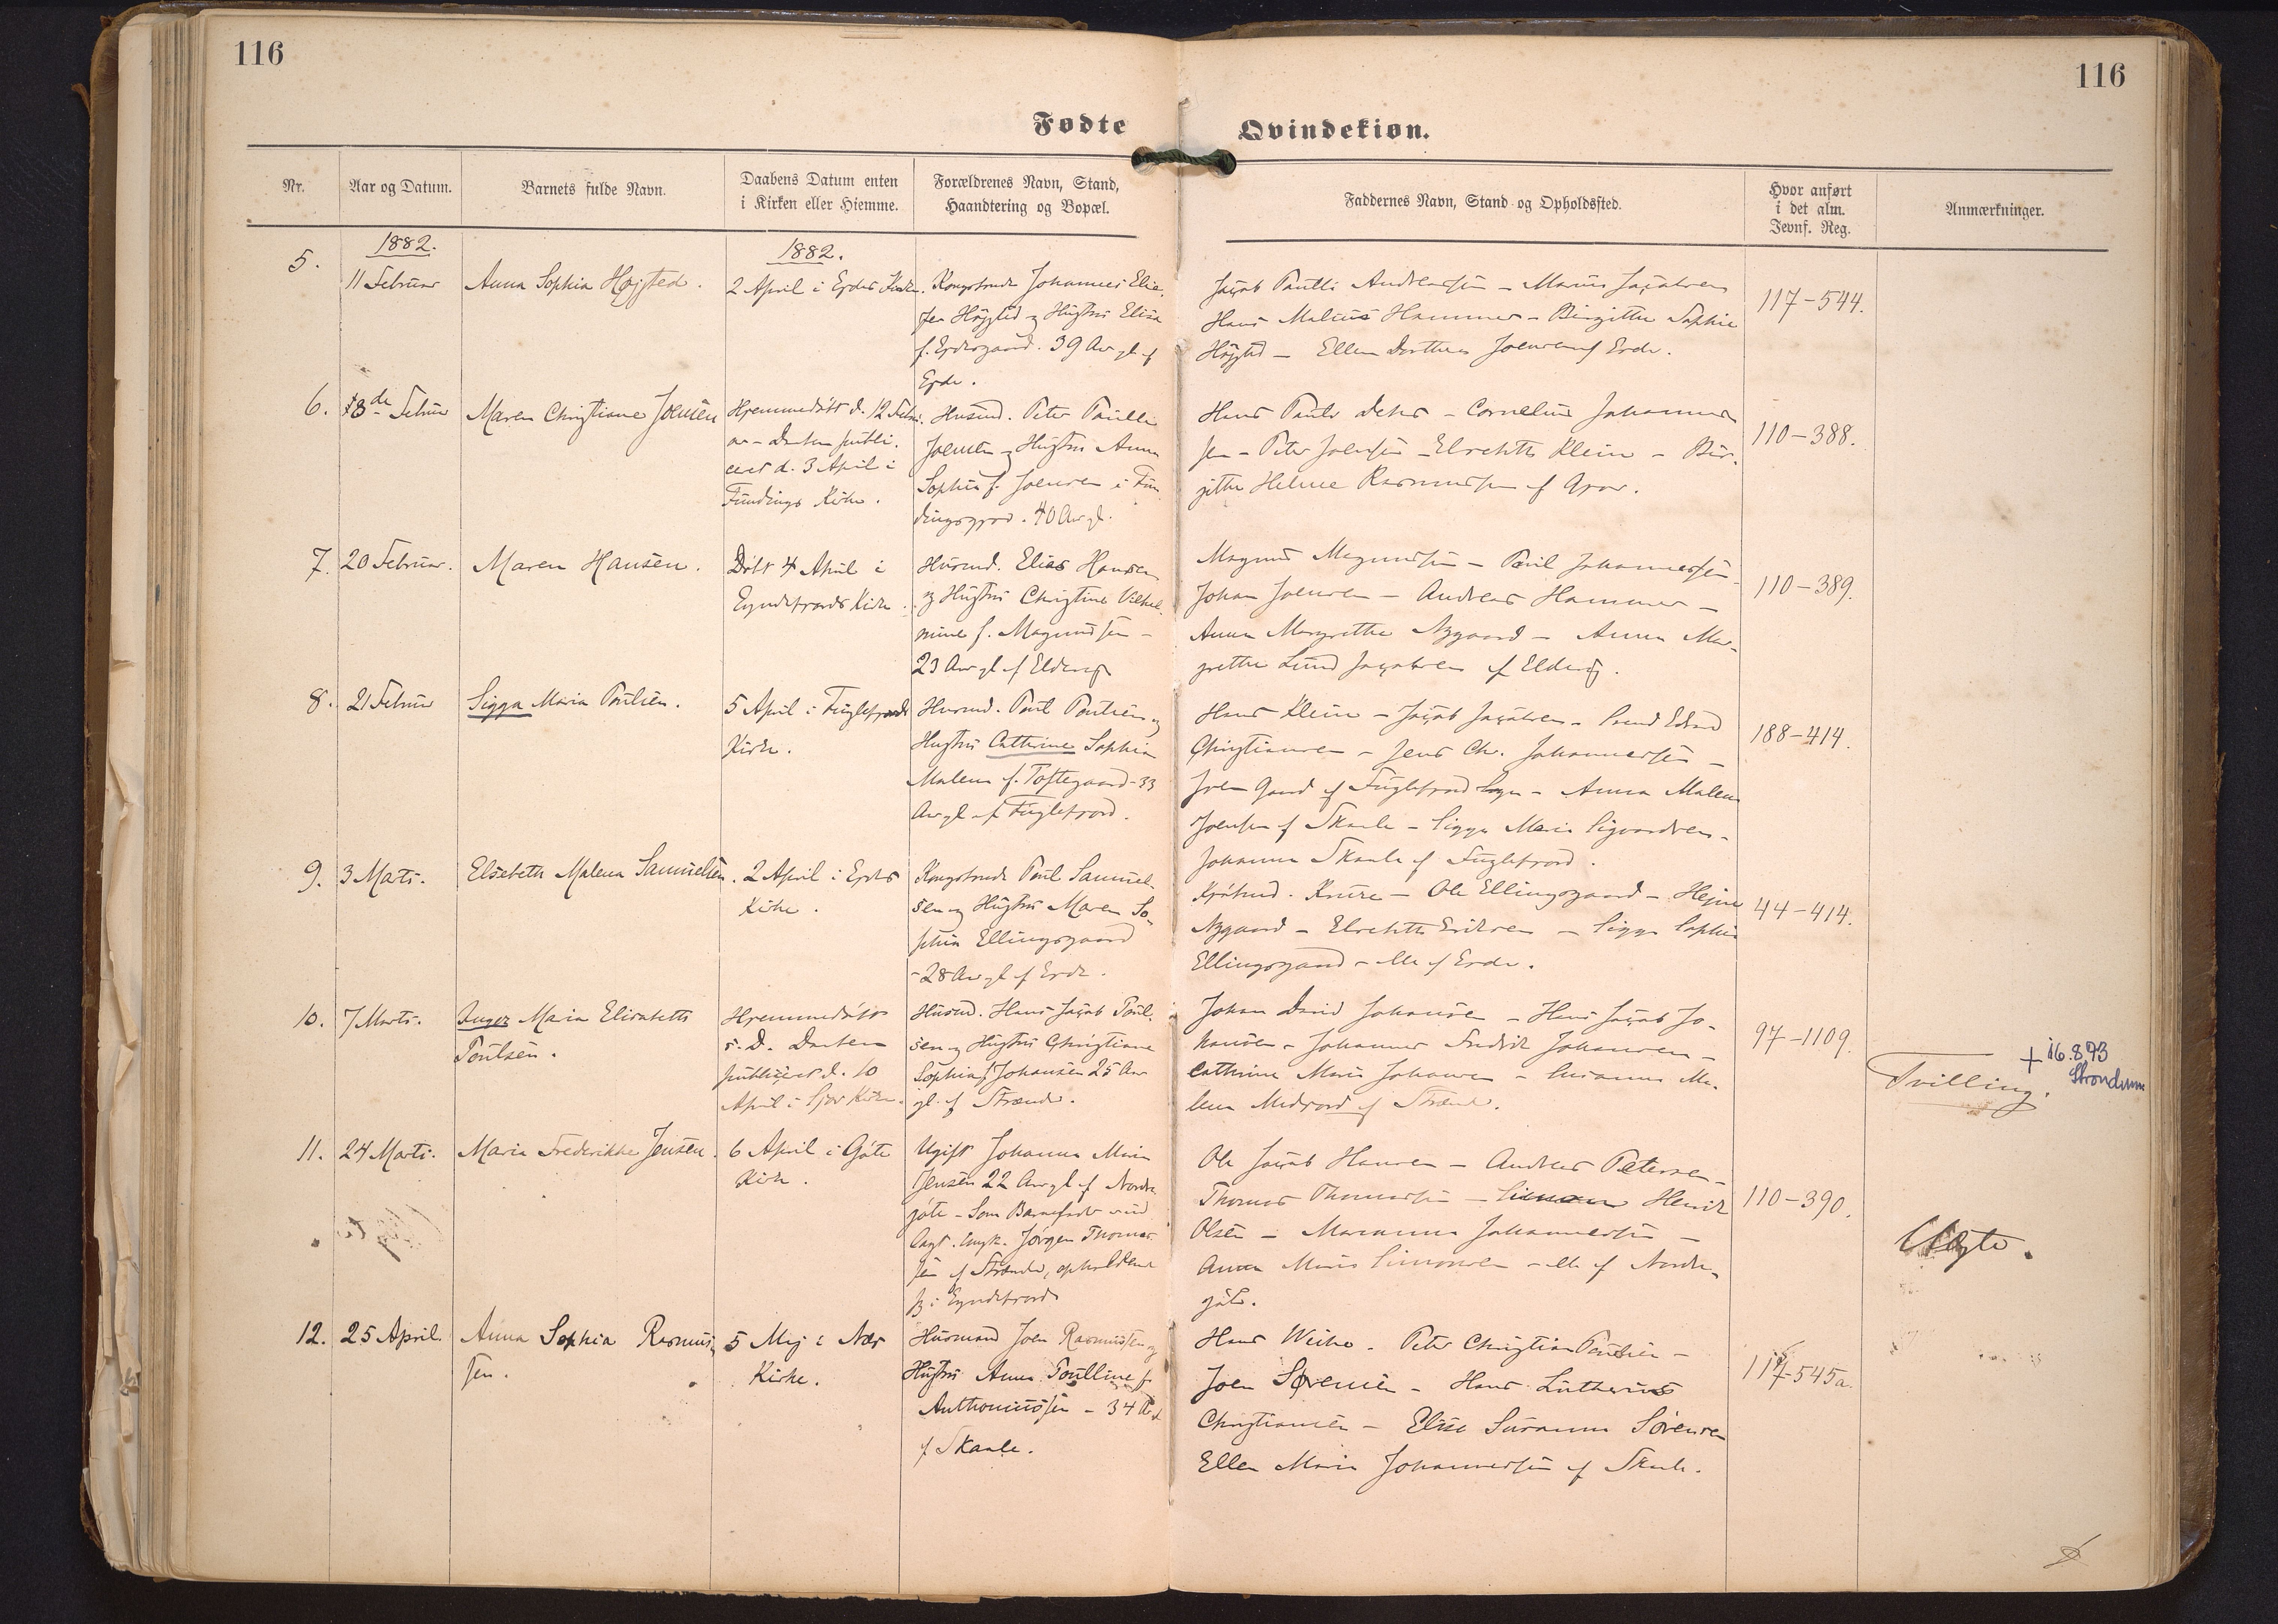 116
116
Fødte
Qvindekiøn.
Nr.
Aar og Datum.
Barnets fulde Navn.
Daabens Datum enten
i Kirken eller Hiemme.
Forældrenes Navn, Stand,
Haandtering og Bopæl.
Faddernes Navn, Stand og Opholdssted.
Hvor anført
i det alm.
Jevnf. Reg.
Anmærkninger.
5.
1882.
11 Februar
Anna Sophia Højgted.
1882.
2 April i Ejdes Kirke.
Kongsbonde Johannes Elia-
sen Højgted og Hustru Elisa
f. Ejdesgaard. 39 Aar gl. af
Ejde.
Jacob Paulli Andreassen - Marius Jacobsen
Hans Malius Hammer - Birgitte Sophie
Højgted - Ellen Dorthea Joensen af Ejde.
117-544.
6.
8de Februar
Maren Christiane Joensen
Hjemmedøbt d. 12 Febru-
ar - Daaben publi-
ceret d. 3 April i
Fundings Kirke.
Husmd. Peter Poulli
Joensen og Hustru Anna
Sophia f. Joensen i Fun-
dingsfjord. 40 Aar gl.
Hans Paul - Cornelius Johannes-
sen - Peter Joensen - Elsebeth Klein - Bir-
gitte Helene Rasmussen af
110-388.
7.
20 Februar.
Maren Hansen.
Døbt 4 April i
Eyndefjords Kirke.
Husmd. Elias Hansen
og Hustru Christine Vilhel-
mine f. Magnussen -
23 Aar gl. af Eldevig
Magnus Magnussen - Poul Johannessen
Johan Joensen - Andreas Hammer -
Anna Margrethe Nygaard - Anna Mar-
grethe Lund Jacobsen af Eldevig.
110-389.
8.
21 Februar
Sigga Maria Poulsen.
5 April i Fuglefjords
Kirke.
Husmd. Poul Poulsen og
Hustru Cathrine Sophia
Malene f. Toftegaard - 33
Aar gl. af Fuglefjord.
Hans Klein - Jacob Jacobsen -
Christiansen - Jens Chr. Johannessen -
Joen Gaard af Fuglefjord - Anna Malene
Joensen af Skaale - Sigga Maria Sigvardsen -
Johanna Skaale af Fuglefjord.
188-414.
9.
3 Marts.
Elsebeth Malena Samuelsen.
2 April i Ejdes
Kirke.
Kongsbonde Poul Samuel-
sen og Hustru Maren So-
phia Ellingsgaard
- 28 Aar gl. af Ejde.
Kjøbmd. Kruse - Ole Ellingsgaard - Hejne
Nygaard - Elsebeth Eriksen - Sigga Sophia
Ellingsgaard - alle af Ejde.
44-414.
10.
7 Marts.
Inger Maria Elisabeth
Poulsen.
Hjemmedøbt
s. D. Daaben
publiceret d. 10
April i Sjov Kirke.
Husmd. Hans Jacob Poul-
sen og Hustru Christiane
Sophia f. Johansen 25 Aar
gl. af Strænde.
Johan David Johansen - Hans Jacob Jo-
hansen - Johannes Fredrik Johansen -
Cathrine Maria Johansen - Susanna Ma-
lena Midjord af Strænde.
97-1109.
Tvilling.
+ 16.8.73
11.
24 Marts.
Maria Frederikke Jensen.
6 April i Gøte
Kirke.
Ugift Johanna Maria
Jensen 22 Aar gl. af Nordre
gøte - Som Barnefader ud-
lagt. Ungk. Jørgen Thomas-
sen af Strænde, opholdende
sig i Eyndefjord
Ole Jacob Hansen - Andreas Petersen -
Thomas Thomassen - Henrik
Olsen - Marianna Johannessen -
Anna Maria Simonsen - alle af Nordre-
gøte.
110-390.
Uægte.
12.
25 April.
Anna Sophia Rasmus-
sen.
5 Mej i Næs
Kirke.
Husmand Joen Rasmussen og
Hustru Anna Poulline f.
Anthoniussen - 34 Aar gl.
af Skaale.
Hans Weihe. Peter Christian Poulsen -
Joen Sørensen - Hans Lutherus
Christiansen - Elise Susanna Sørensen
Ellen Maria Johannessen af Skaale.
117-545a.